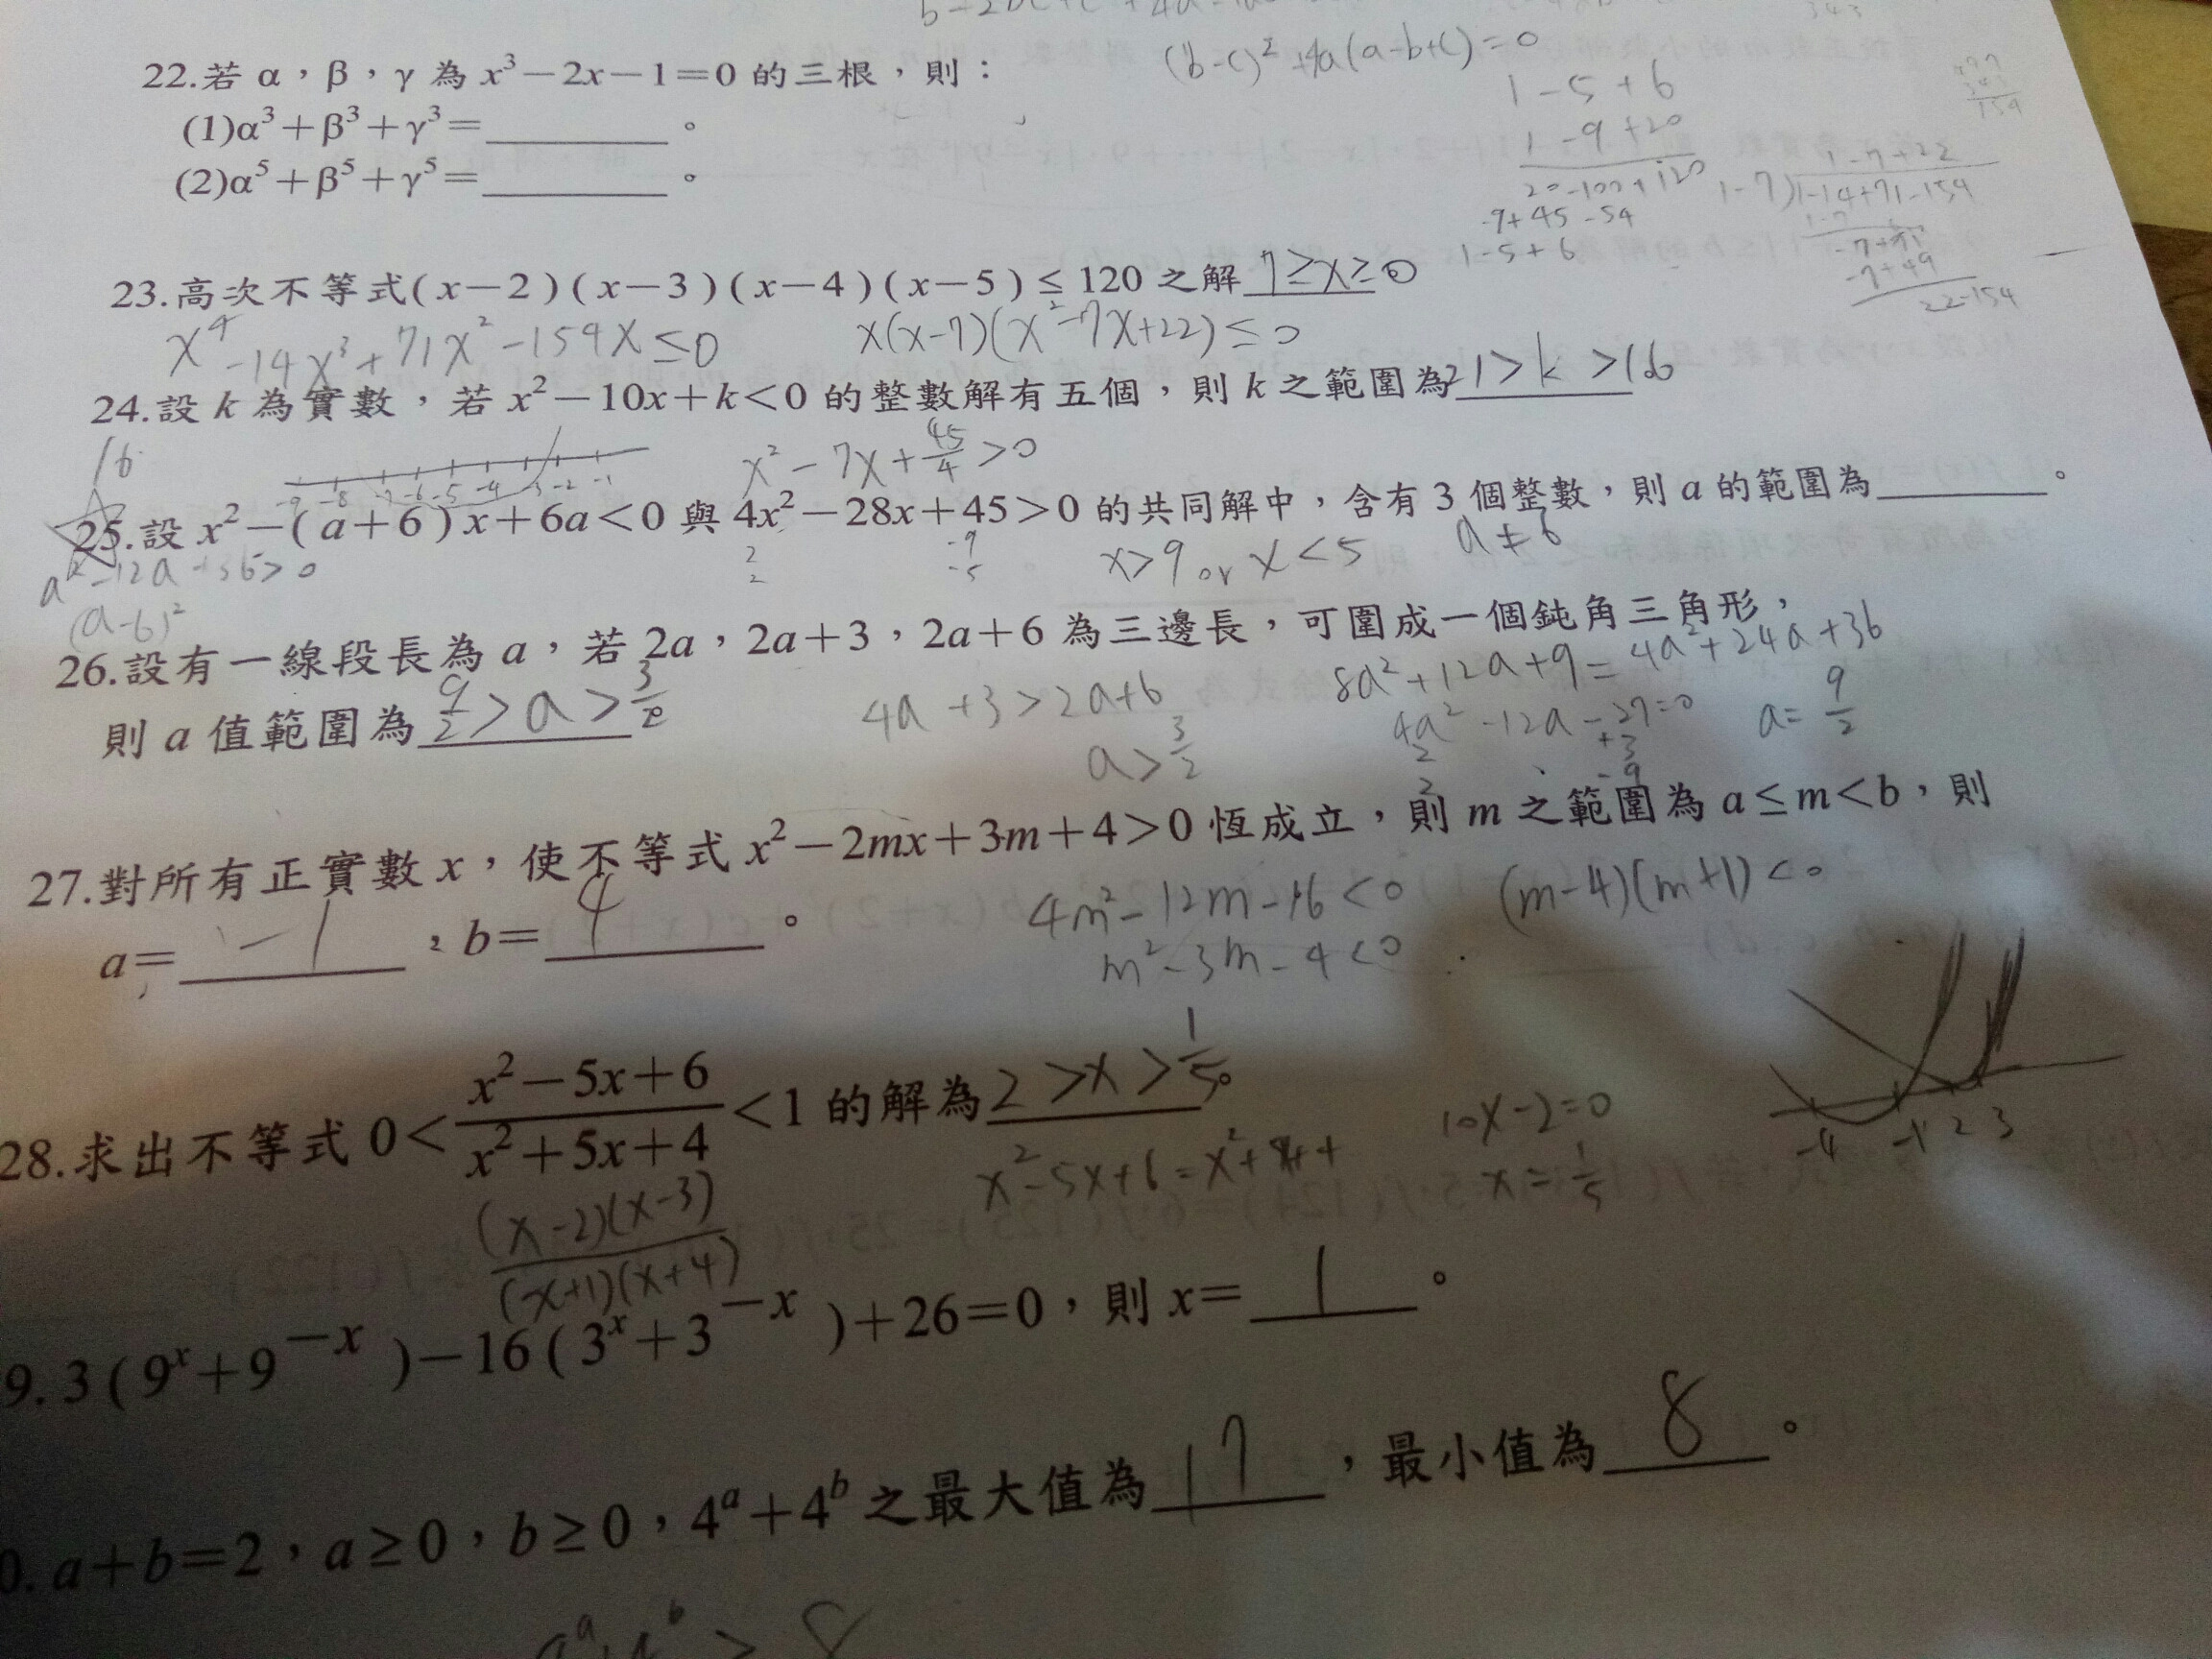 (b-c)²+4a(a-b+c)=0
22.若 α，β，γ 為 x³−2x−1=0 的三根，則：
1-5+6
(1)α³+β³+γ³=________。
1-9+20
(2)α⁵+β⁵+γ⁵=________。
20-100+120
-9+45-54
1-5+6
1-7+22
1-7)1-14+71-154
1-7
-7+71
-7+49
22-154
23.高次不等式(x−2)(x−3)(x−4)(x−5)≤120 之解 7≥x≥0
x⁴-14x³+71x²-154x≤0
x(x-7)(x²-7x+22)≤0
24.設 k 為實數，若 x²−10x+k<0 的整數解有五個，則 k 之範圍為 21>k>16
16
-9 -8 -7 -6 -5 -4 -3 -2 -1
x²-7x+45/4>0
25.設 x²−(a+6)x+6a<0 與 4x²−28x+45>0 的共同解中，含有 3 個整數，則 a 的範圍為________。
a²-12a+36>0
(a-6)²
2 -9
2 -5
x>9 or x<5
a≠6
26.設有一線段長為 a，若 2a，2a+3，2a+6 為三邊長，可圍成一個鈍角三角形，
則 a 值範圍為 9/2>a>3/2
4a+3>2a+6
a>3/2
8a²+12a+9=4a²+24a+36
4a²-12a-27=0
2 +3
2 -9
a=9/2
27.對所有正實數 x，使不等式 x²−2mx+3m+4>0 恆成立，則 m 之範圍為 a≤m<b，則
a= -1 ，b= 4 。
4m²-12m-16<0
m²-3m-4<0
(m-4)(m+1)<0
28.求出不等式 0<(x²−5x+6)/(x²+5x+4)<1 的解為 2>x>1/5。
(x-2)(x-3)
(x+1)(x+4)
x²-5x+6=x²+5x+4
10x-2=0
x=1/5
-4 -1 2 3
9.3(9ˣ+9⁻ˣ)−16(3ˣ+3⁻ˣ)+26=0，則 x= 1 。
0.a+b=2，a≥0，b≥0，4ᵃ+4ᵇ 之最大值為 17 ，最小值為 8 。